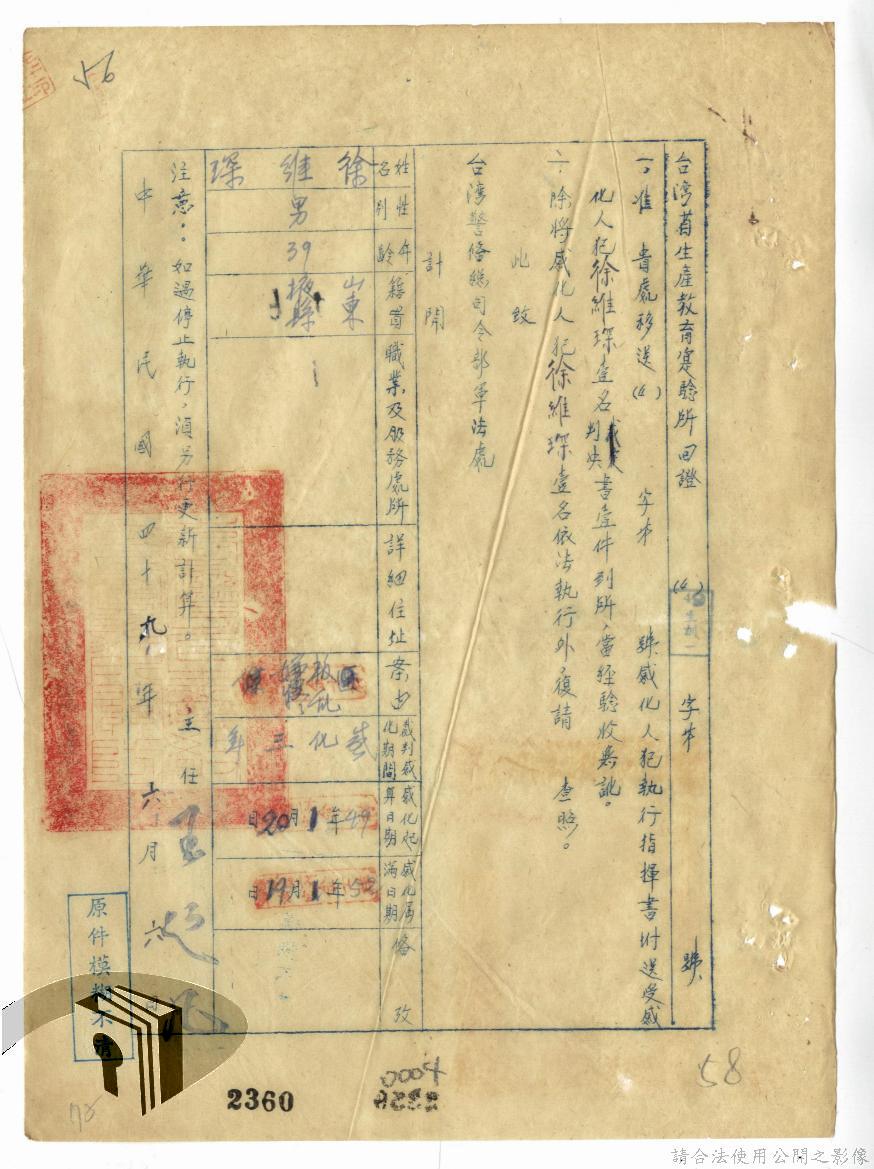 56
台湾省生産教育實驗所回證
(4)
字第
號
一、准 貴處移送(4) 字第 號感化人犯執行指揮書附送受感
化人犯徐維琛壹名判决書壹件到所，當經驗收無訛。
一、除將感化人犯徐維琛壹名依法執行外，復請 查照。
此致
台湾警俻總司令部軍法處
計開
姓名
性別
年齡
籍貫
職業及服務處所
詳細住址
案由
裁判感化期間
感化起算日期
感化屆滿日期
俻攷
徐維琛
男
39
山東
掖縣
叛亂
感化三年
49年1月20日
52年1月19日
注意：如遇停止執行，須另行更新計算。
主任
中華民國四十九年六月六日
原件模糊不清
58
2360
請合法使用公開之影像